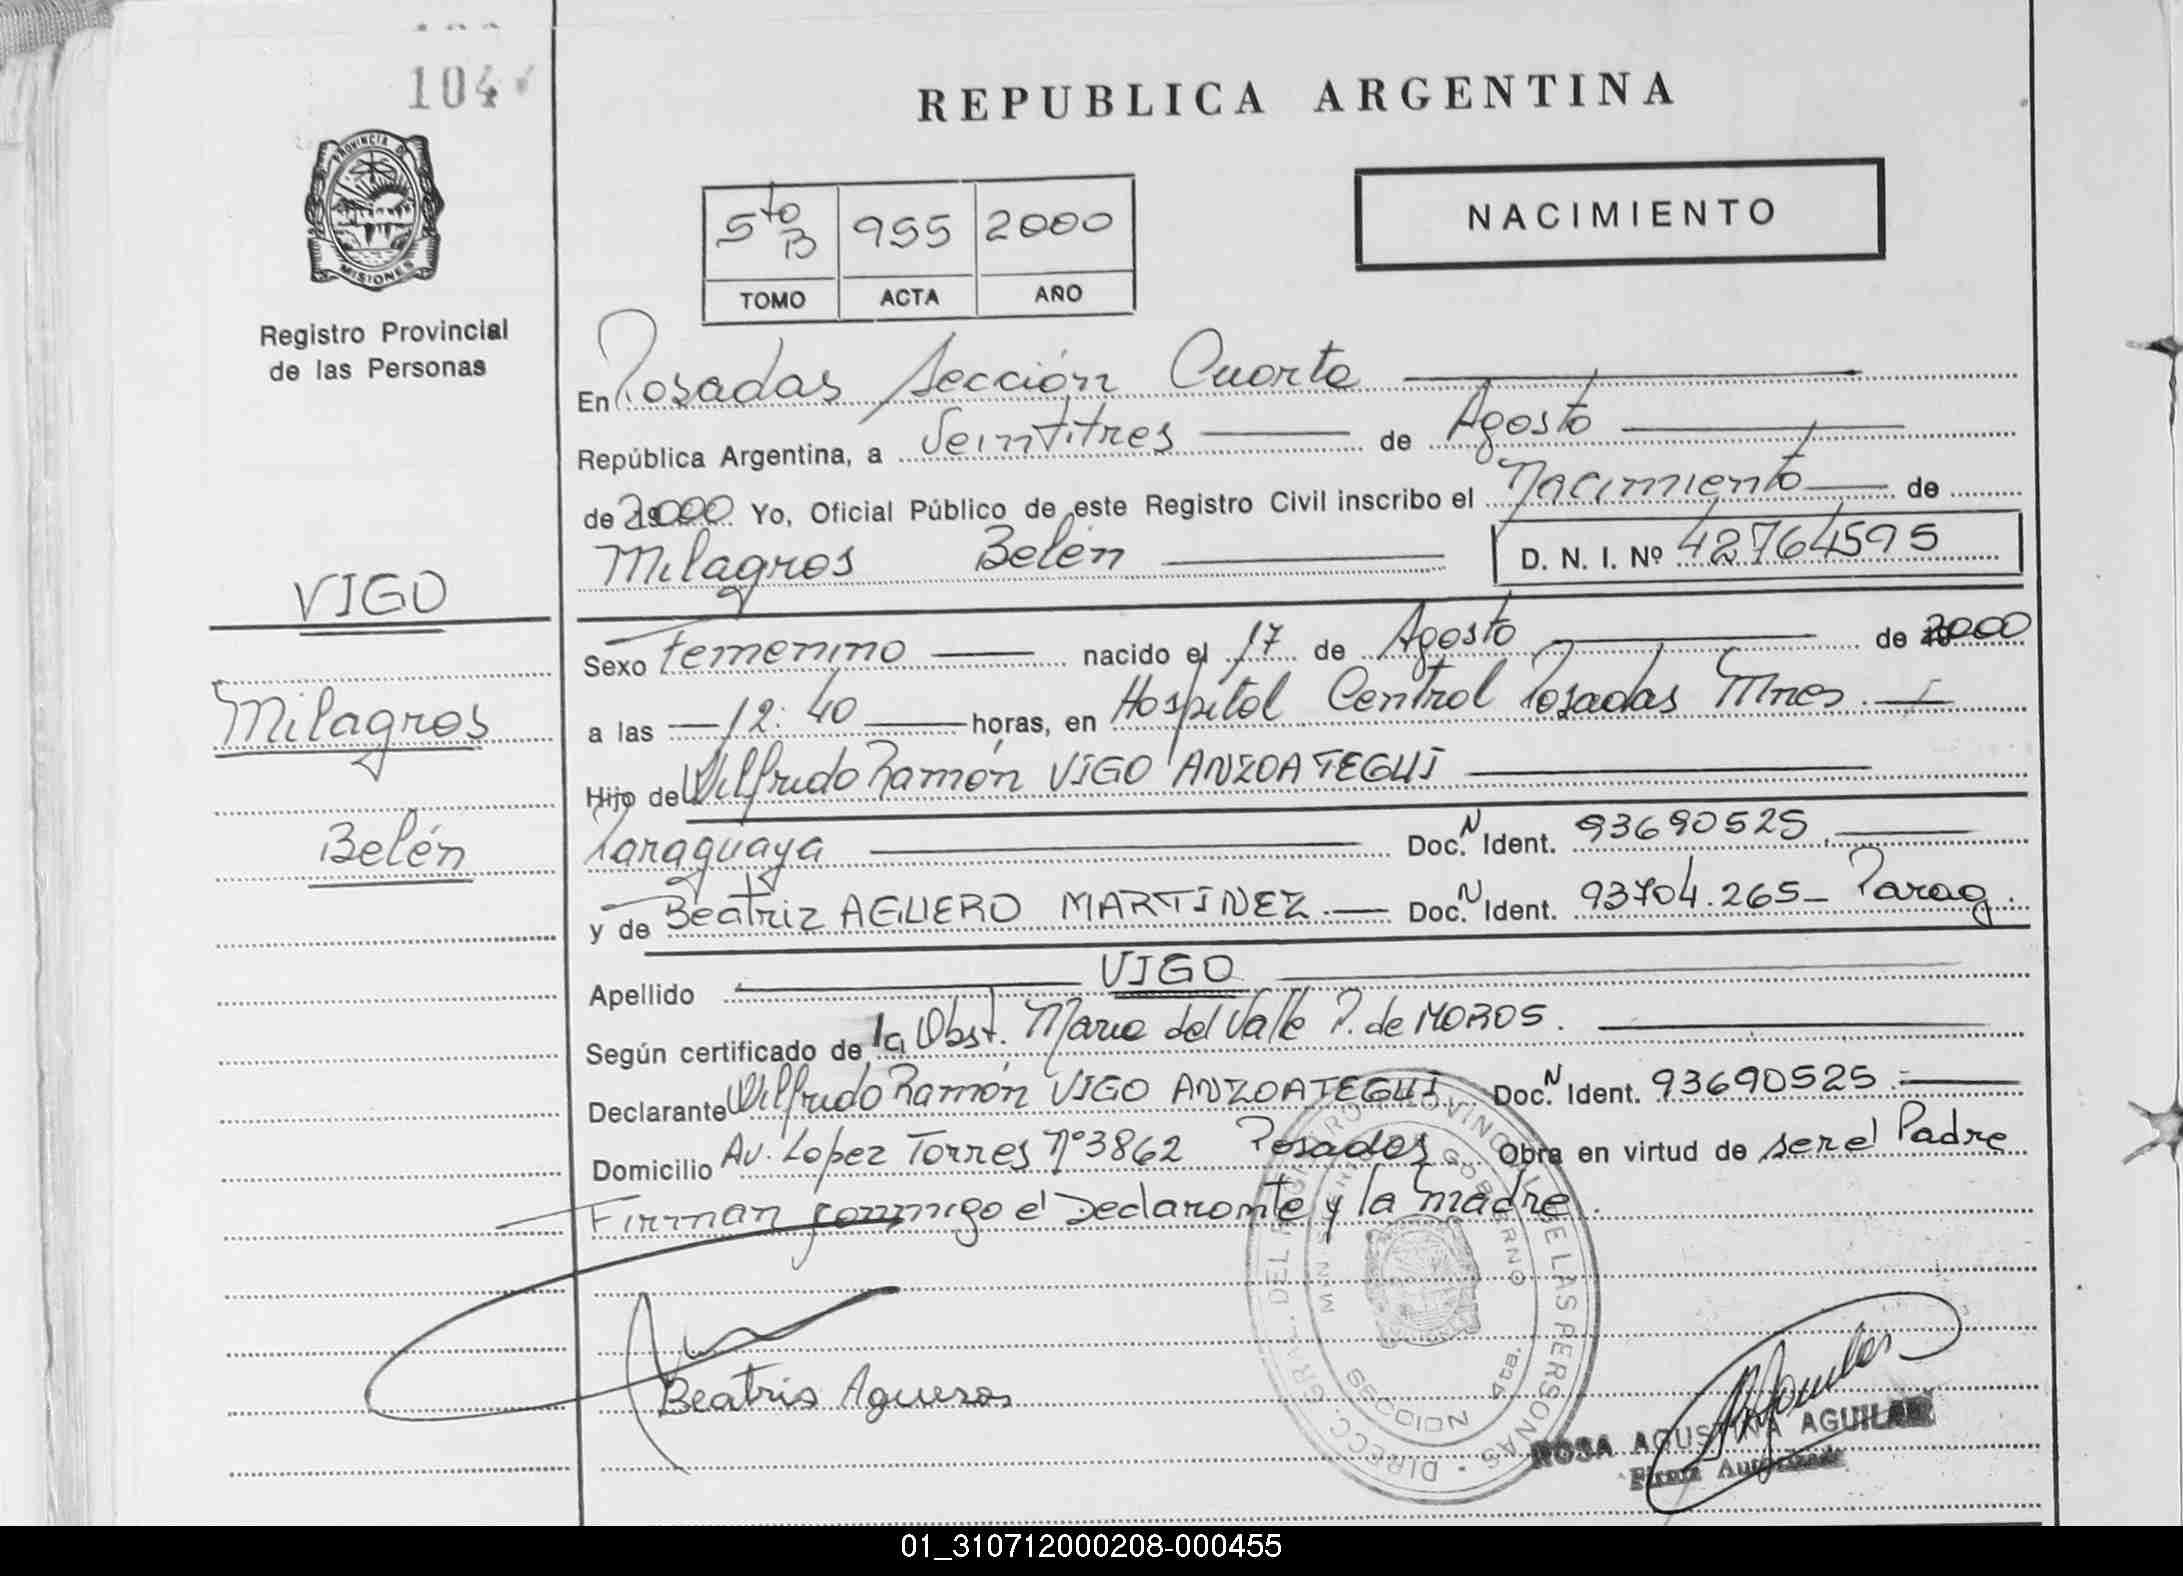 104
REPUBLICA ARGENTINA
PROVINCIA D
MISIONES
Registro Provincial
de las Personas
5to B 955 2000
TOMO ACTA AÑO
NACIMIENTO
En Posadas Sección Cuarta
República Argentina, a Veintitres de Agosto
de 2000 Yo, Oficial Público de este Registro Civil inscribo el Nacimiento de
Milagros Belén D. N. I. Nº 42764595
VIGO
Milagros
Belén
Sexo femenino nacido el 17 de Agosto de 2000
a las 12:40 horas, en Hospital Central Posadas Mnes.
Hijo de Wilfredo Ramón VIGO ANZOATEGUI
Paraguaya Doc. N Ident. 93690525
y de Beatriz AGUERO MARTINEZ.— Doc. N Ident. 93704.265- Parag.
Apellido VIGO
Según certificado de la Obst. Maria del Valle P. de MOROS.
Declarante Wilfrido Ramón VIGO ANZOATEGUI Doc. N Ident. 93690525
Domicilio Av. Lopez Torres Nº3862 Posadas Obra en virtud de ser el Padre
Firman conmigo el Declarante y la madre.
DIRECC. GRAL. DEL REGISTRO PROVINCIAL DE LAS PERSONAS
MINISTERIO GOBIERNO
SECCION 4ta.
Beatris Agueros
ROSA AGUSTINA AGUILAR
Firma Autorizada
01_310712000208-000455